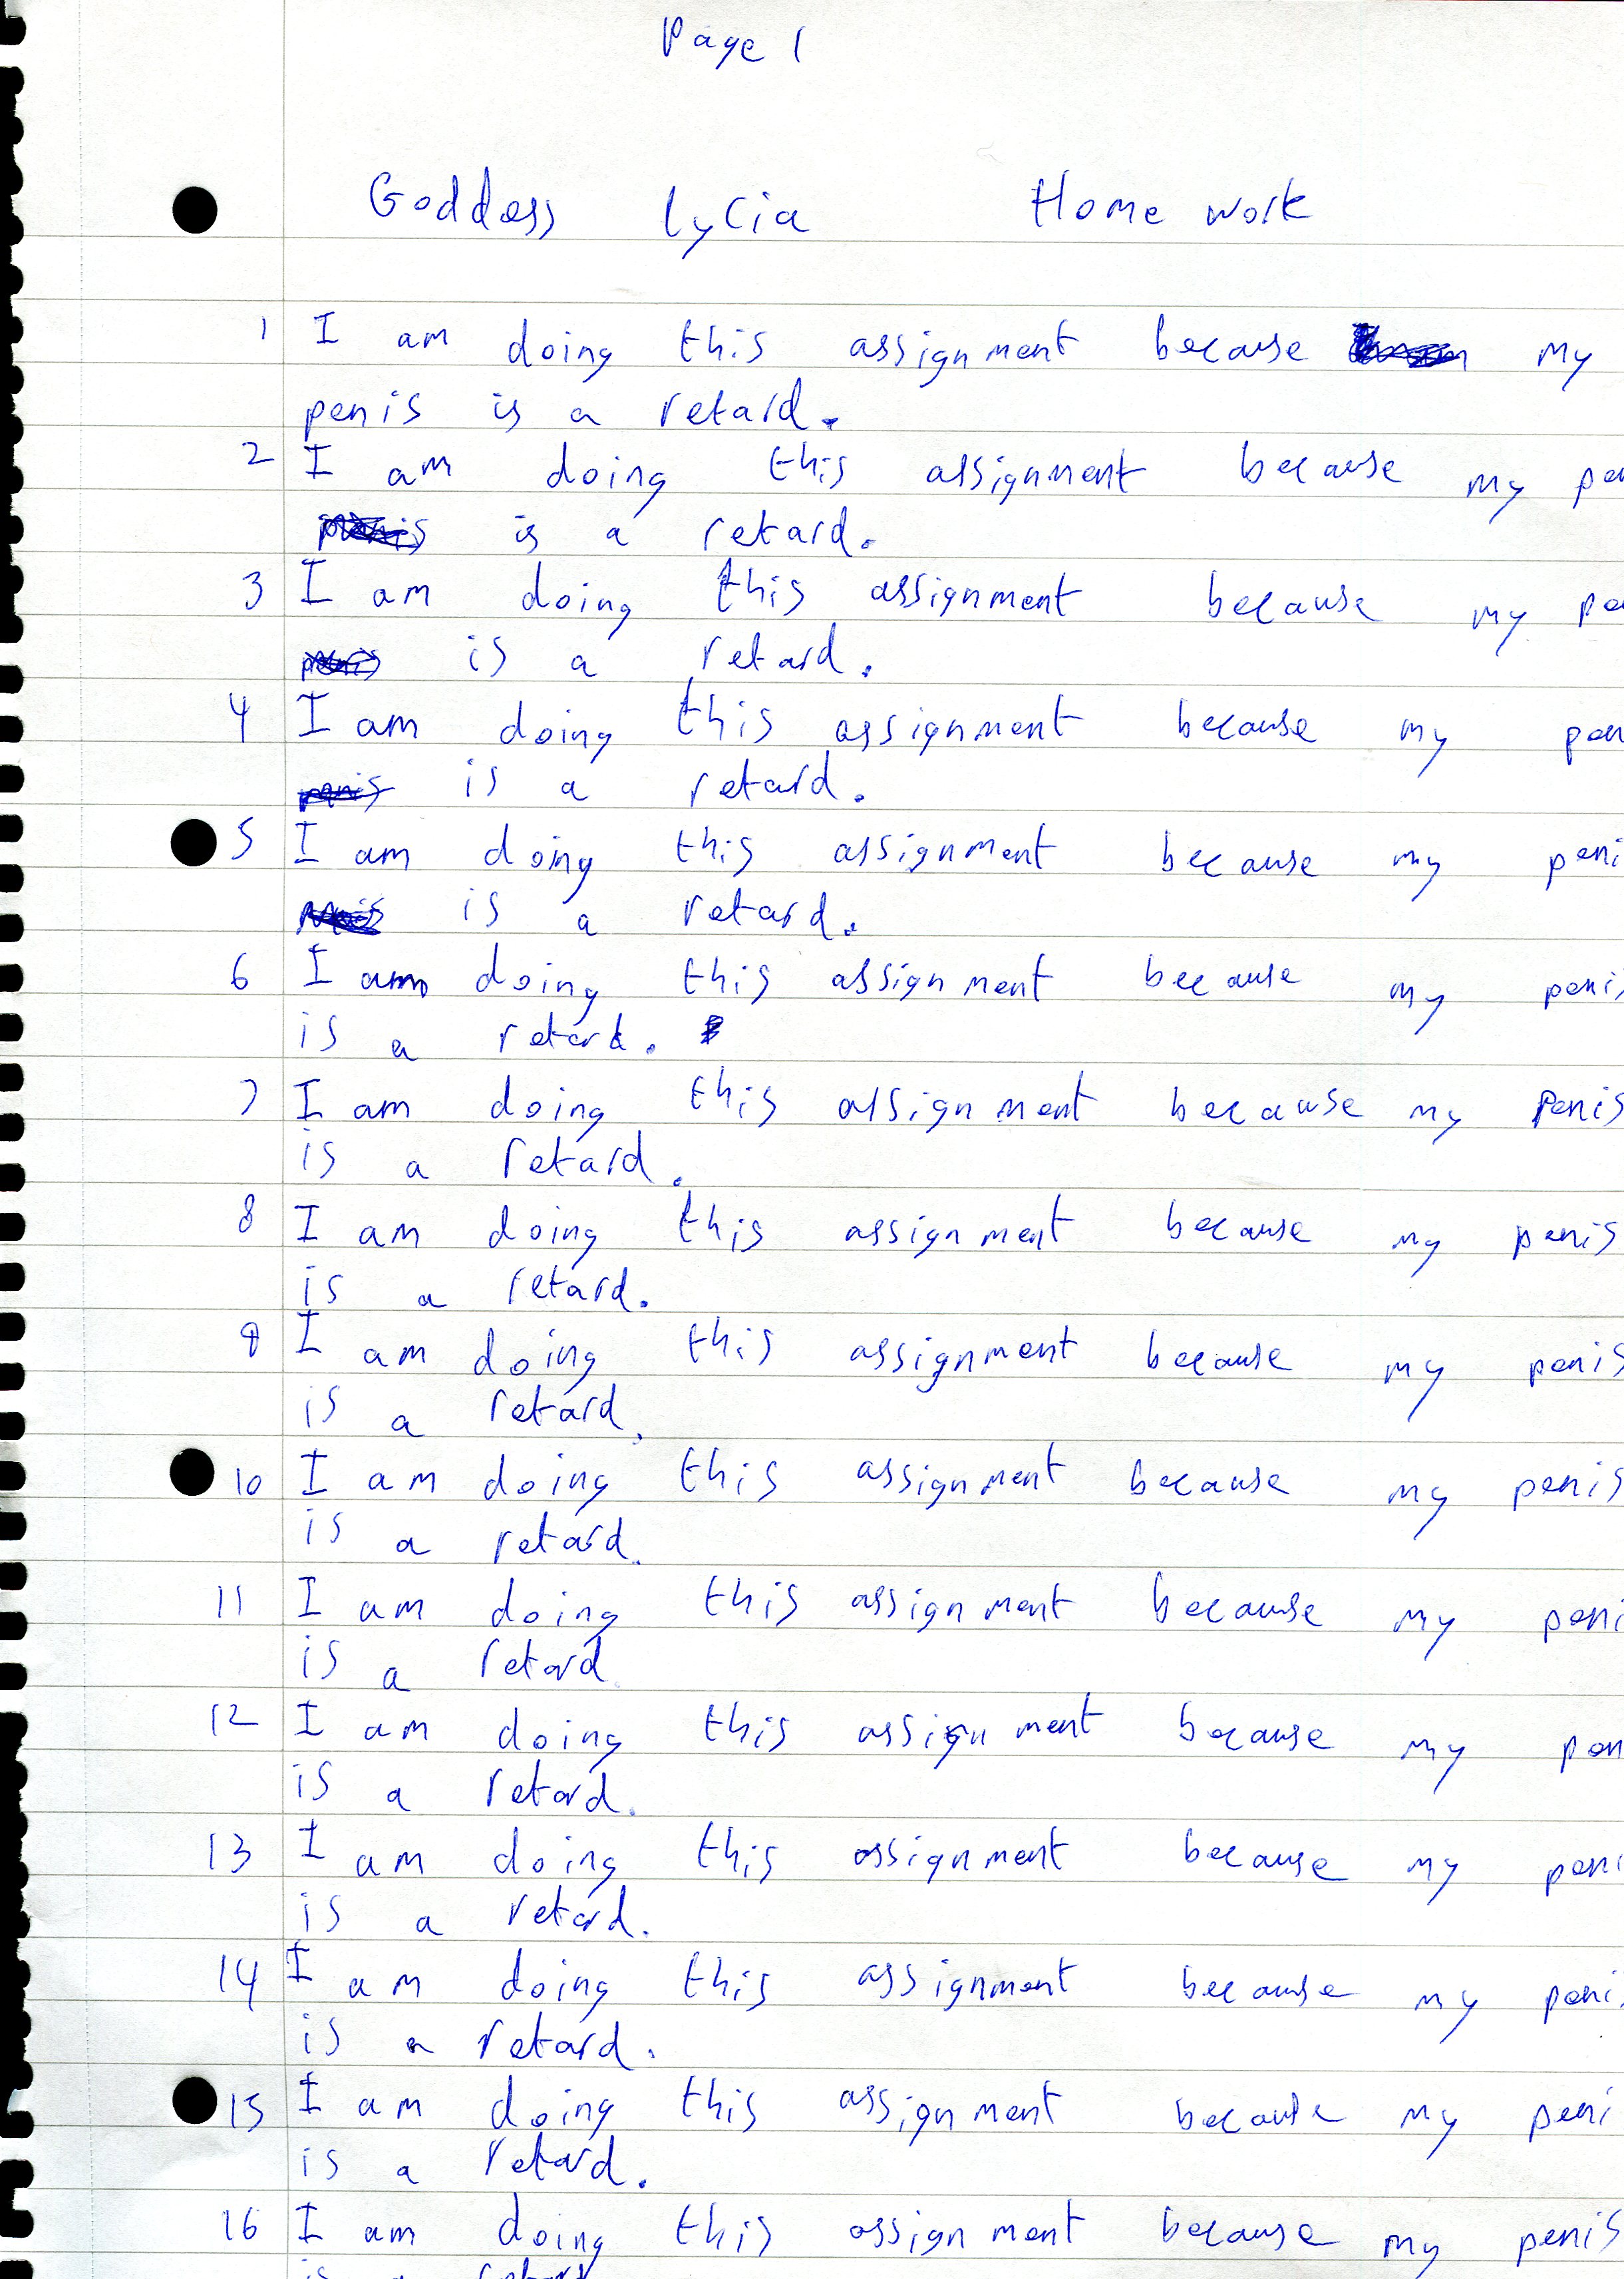 Page 1
Goddess Lycia Home work
1 I am doing this assignment because my
penis is a retard.
2 I am doing this assignment because my pe
is a retard.
3 I am doing this assignment because my pe
is a retard.
4 I am doing this assignment because my pen
penis is a retard.
5 I am doing this assignment because my peni
is a retard.
6 I am doing this assignment because my penis
is a retard.
7 I am doing this assignment because my Penis
is a retard.
8 I am doing this assignment because my penis
is a retard.
9 I am doing this assignment because my penis
is a retard.
10 I am doing this assignment because my penis
is a retard.
11 I am doing this assignment because my peni
is a retard
12 I am doing this assignment because my pen
is a retard.
13 I am doing this assignment because my peni
is a retard.
14 I am doing this assignment because my peni
is a retard.
15 I am doing this assignment because my peni
is a retard.
16 I am doing this assignment because my penis
is a retard